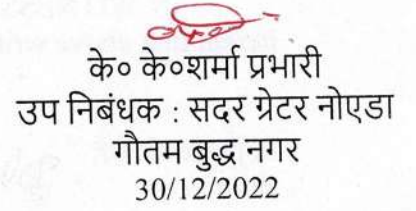 के० के०शर्मा प्रभारी
उप निबंधक : सदर ग्रेटर नोएडा
गौतम बुद्ध नगर
30/12/2022